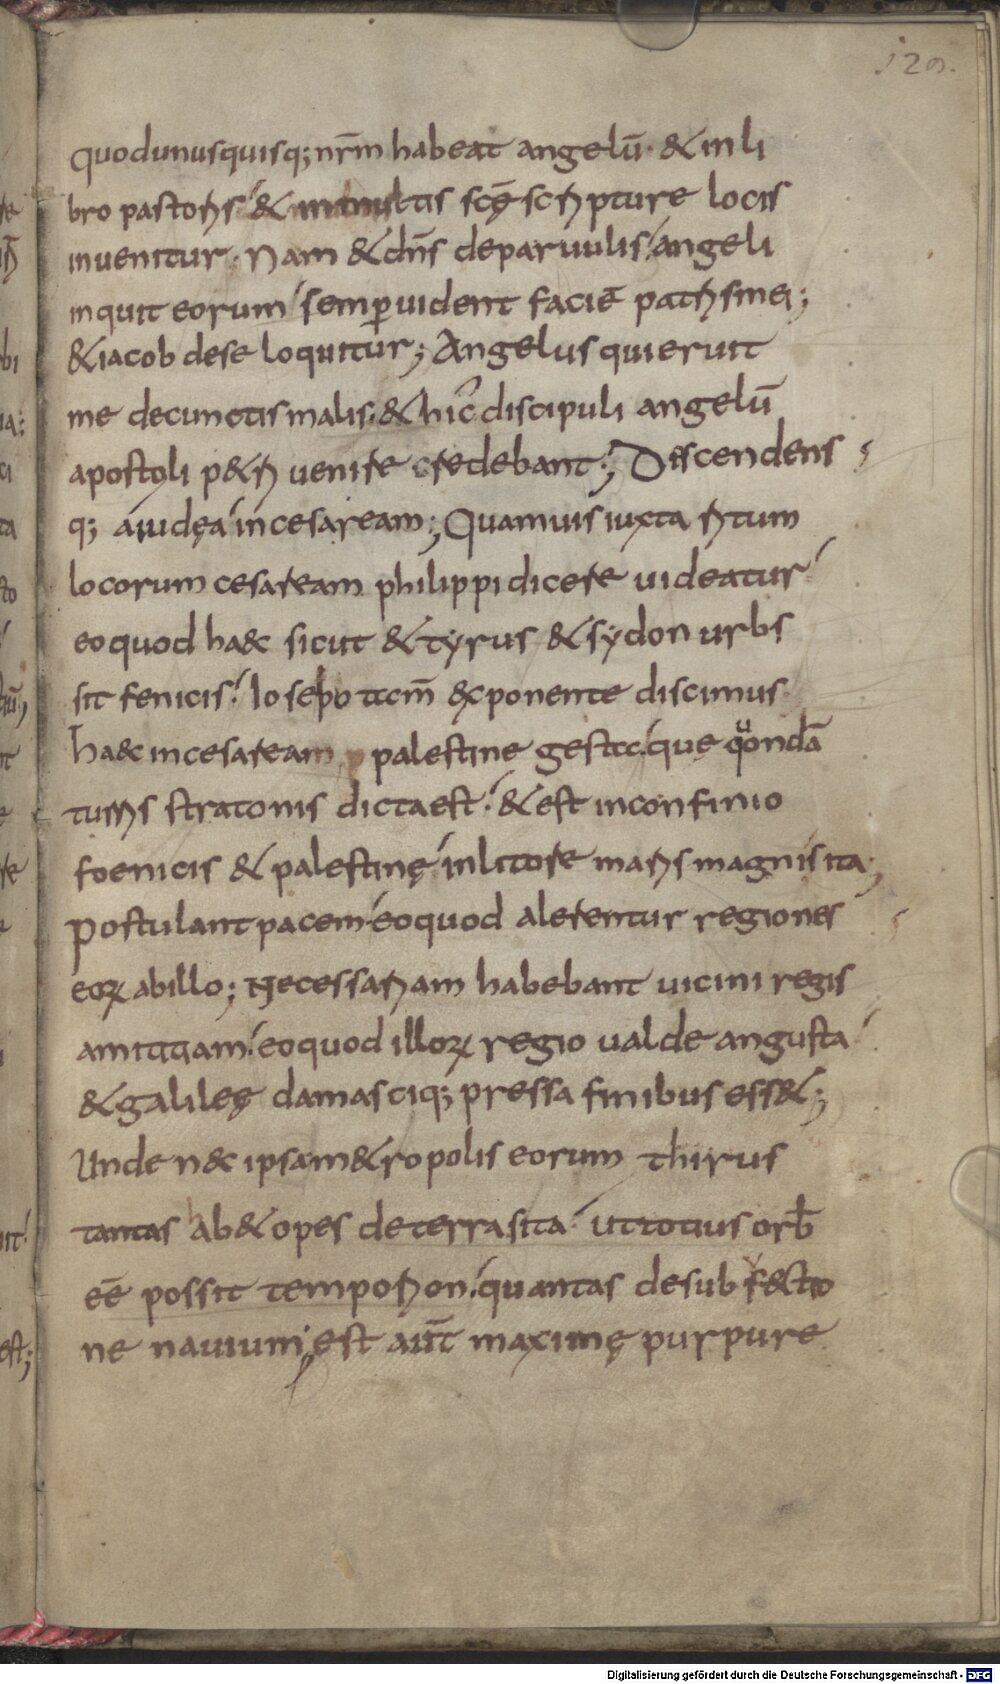 129.
quodunusquisq; nr̄m habeat angelū· & in li
bro pastoris & inmultis scę̄ scripture locis
inuenitur· Nam & dn̄s deparuulis angeli
inquit eorum semp̄ uident faciē patris mei;
& iacob dese loquitur; Angelus qui eruit
me decunctis malis· & hic discipuli angelū
apostoli p&ri uenire credebant; Discendens
q; aiudęa in cesaream; Quamuis iuxta ritum
locorum cesaream philippi dicere uideatur
eo quod haec sicut & tyrus & sydon urbs
sit fenicis· Iosepo tam̄ exponente discimus
haec in cesaream palestine gesta· quę quondā
turris stratonis dicta est· & est in confinio
foenicis & palestinę in litore maris magni sita;
Postulant pacem eo quod alerentur regiones
eoꝝ abillo; Necessariam habebant uicini regis
amicitiam· eo quod illoꝝ regio ualde angusta
& galileę damasciq; pressa finibus ess&;
Unde nec ipsa m&ropolis eorum thirus
tantas hab& opes de terra sita· ut totius orb̄
eē possit temporion· quantas de subuectio
ne nauium· est aūt maximę purpure
Digitalisierung gefördert durch die Deutsche Forschungsgemeinschaft - DFG